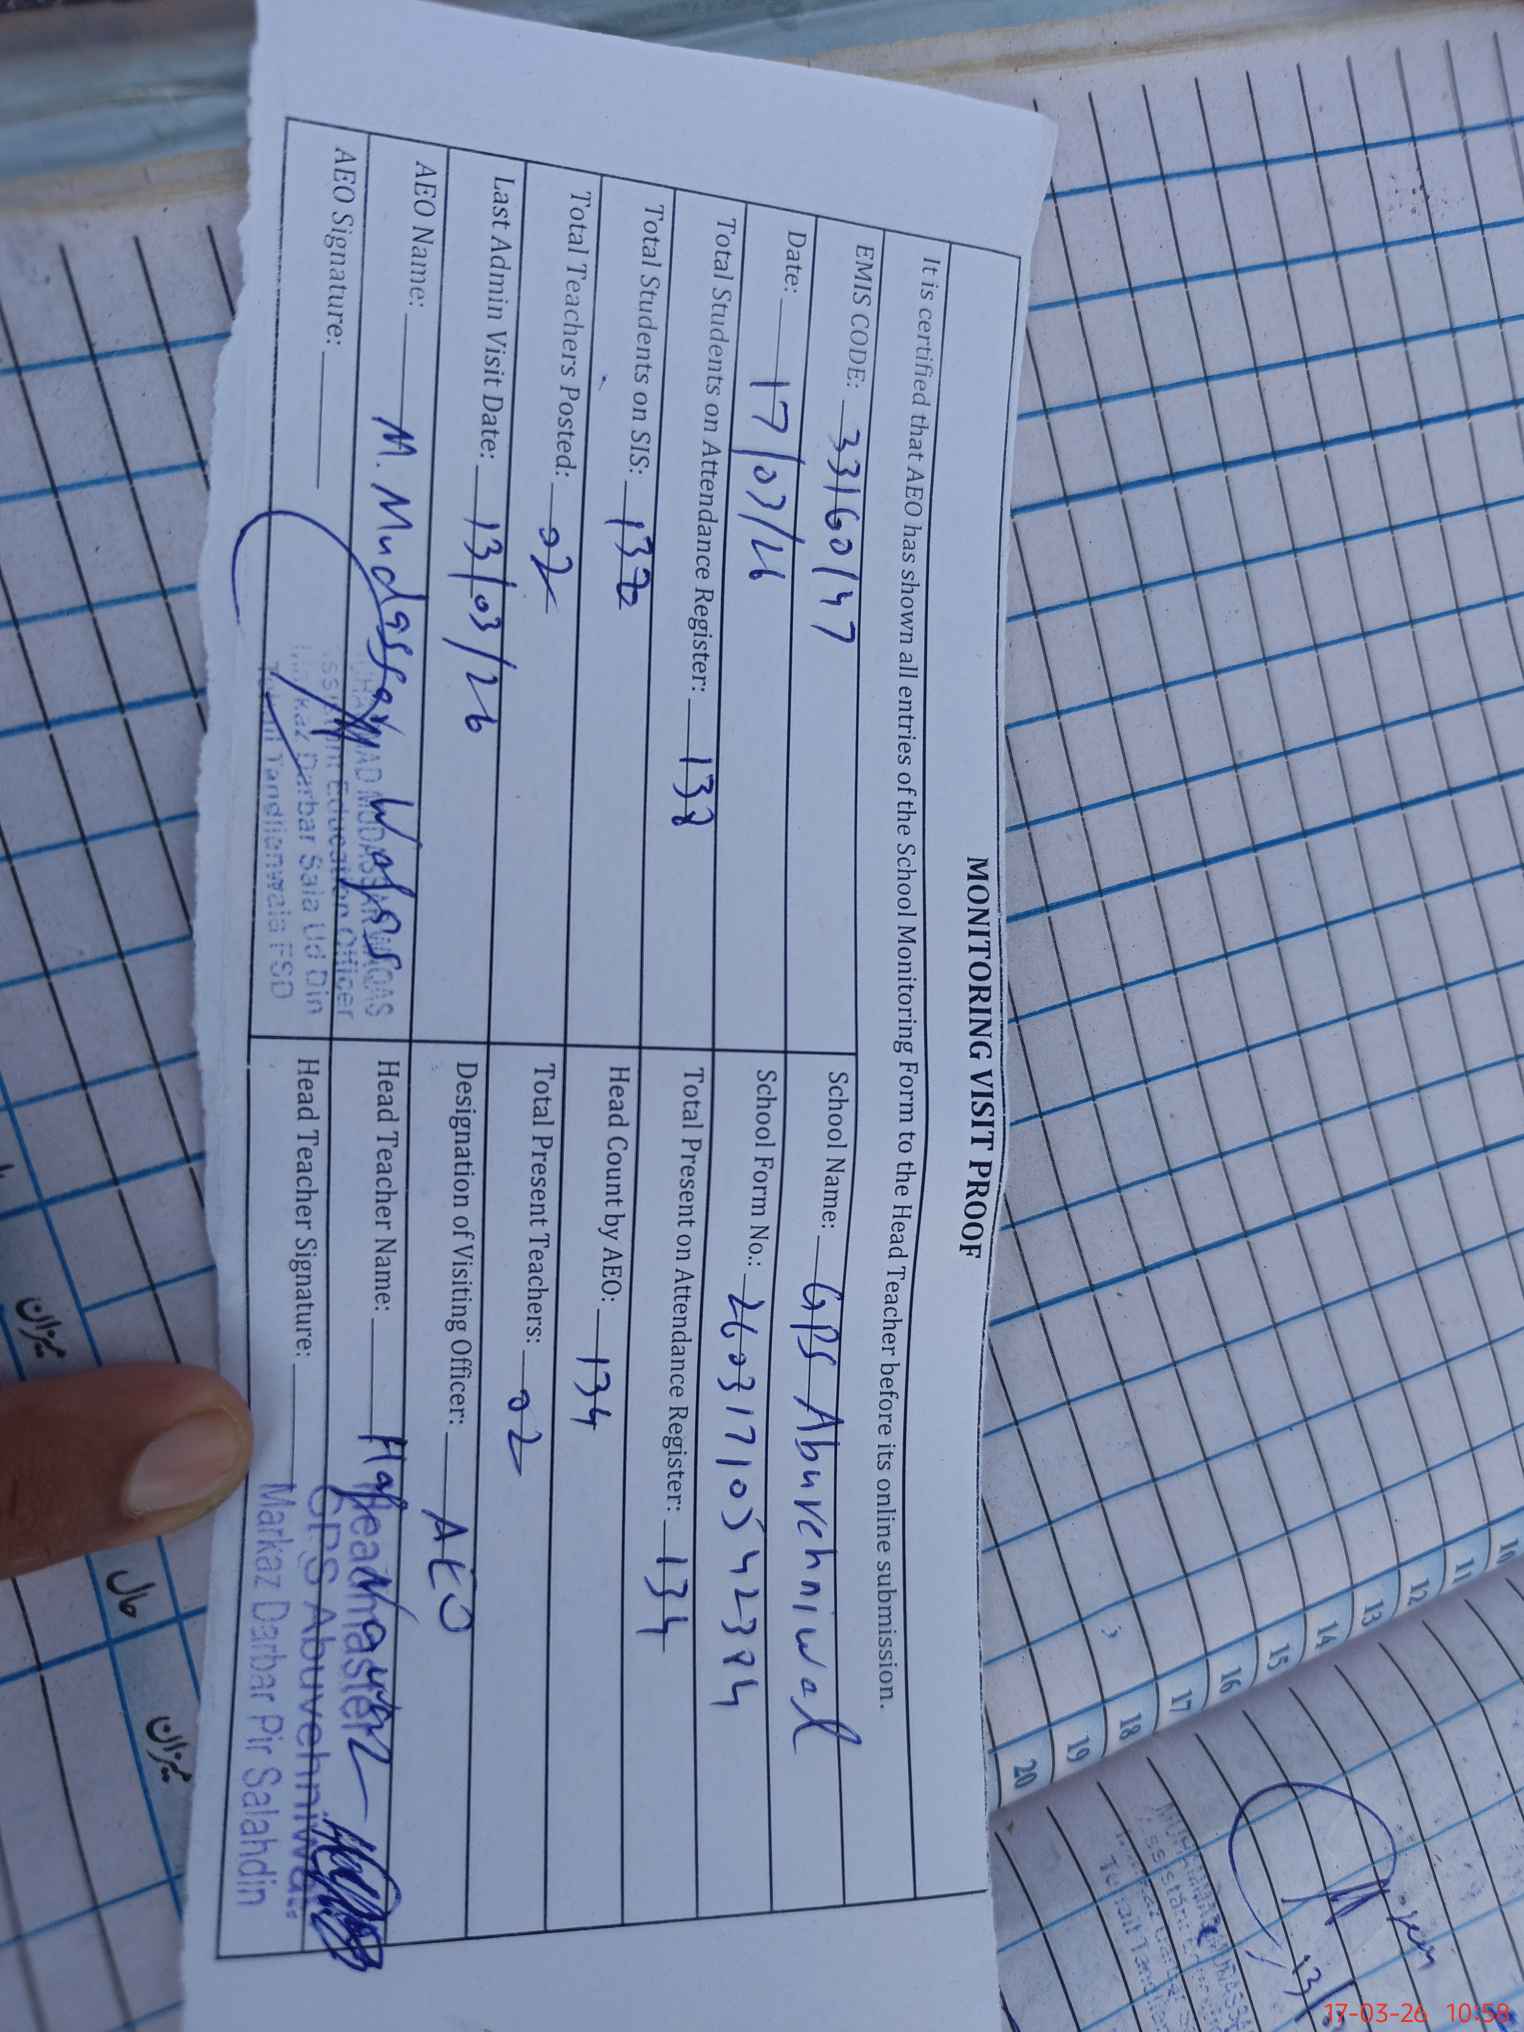 MONITORING VISIT PROOF
It is certified that AEO has shown all entries of the School Monitoring Form to the Head Teacher before its online submission.
EMIS CODE: 33160147
School Name: GPS Abuvehniwal
Date: 17/03/26
School Form No.:
Total Students on Attendance Register: 138
Total Present on Attendance Register: 134
Total Students on SIS: 138
Head Count by AEO: 134
Total Teachers Posted: 02
Total Present Teachers: 02
Last Admin Visit Date: 13/03/26
Designation of Visiting Officer: AEO
AEO Name: M. Mudassar Waqas
Head Teacher Name:
AEO Signature:
Head Teacher Signature:
Education Officer
Darbar Sala Ud Din
Tandlianwala FSD
Headmaster
GPS Abuvehniwal
Markaz Darbar Pir Salahdin
میزان
حال
میزان
10
11
12
13
14
15
16
17
18
19
20
17-03-26 10:58